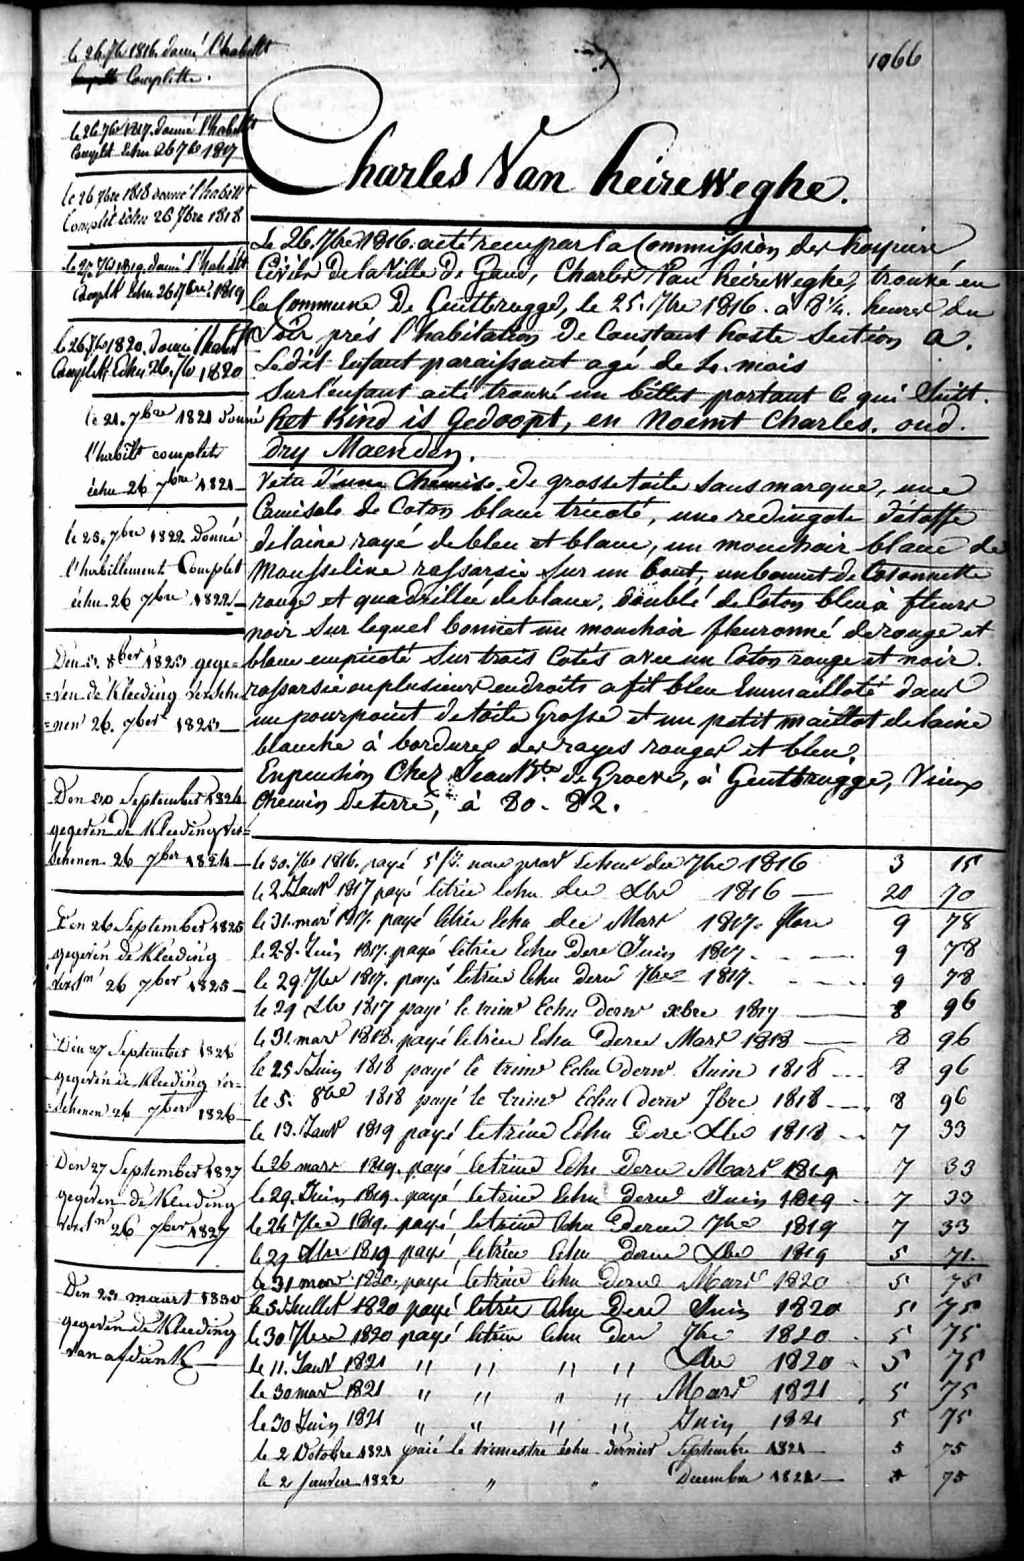 1066
Charles Van heireweghe.
Le 26. 7bre 1816. a été recu par la Commission des hospices
Civiles de la Ville de Gand, Charles Van heireweghe, trouvé en
la Commune De Gentbrugge, le 25. 7bre 1816. a 8 1/4. heures du
Soir prés l'habitation de Constant hoste Section a.
Ledit Enfant paraissant agé de 4. mois
Sur l'enfant a été trouvé un billet portant ce qui Suitt.
het kind is gedoopt, en Noemt Charles. oud.
dry Maenden.
Vetu d'une Chemise de grosse toile sans marque, une
Camisole de Coton blanc tricoté, une redingote d'étoffe
de laine rayé de bleu et blanc, un mouchoir blanc de
Mousseline rassarsie sur un bout, un bonnet de Cotonnette
rouge et quadrillée de blanc, doublé de Coton bleu à fleurs
noir Sur lequel bonnet un mouchoir fleuronné de rouge et
blanc empicoté Sur trois Cotés avec un Coton rouge et noir.
rassarsie en plusieurs endroits a fil bleu Emmailloté dans
un pourpoint de toile Grosse et un petit maillot de laine
blanche à bordures des rayes rouges et bleu.
En pension Chez Jean Bte. de Groeve, à Gentbrugge, Vieux
Chemin de terre, à 80-82.
le 30. 7bre 1816. payé nouv Echue du 7bre 1816 3 15
le 2 Janv 1817 payé letrim Echu du Xbre 1816 — 20 70
le 31. mars 1817. payé letrim Echu du Mars 1817. 9 78
le 28. Juin 1817. payé letrim Echu Derr Juin 1817. 9 78
le 29 7bre 1817. payé letrim Echu Derr 7bre 1817. 9 78
le 29 Xbre 1817 payé le trimr Echu Dernr xbre 1817 — 8 96
le 31. mars 1818. payé letrim Echu Derner Mars 1818 — 8 96
le 25 Juin 1818 payé le trimr Echu dernr Juin 1818 8 96
le 5. 8bre 1818 payé le trimr Echu dernr 7bre 1818 8 96
le 13. Janv 1819 payé letrim Echu Derr Xbre 1818 7 33
le 26 mars 1819. payé letrim Echu Dernr Mars 1819 7 33
le 29. Juin 1819. payé letrim Echu dernr Juin 1819 7 33
le 24 7bre 1819. payé letrim Echu dernr 7bre 1819 7 33
le 29 Xbre 1819 payé letrim Echu dernr Xbre 1819 5 71
le 31 mars 1820. payé letrim Echu Dernr Mars 1820 5 75
le 5 Juillet 1820 payé letrim Echu Derr Juin 1820 5 75
le 30 7bre 1820 payé letrim Echu Derr 7bre 1820 5 75
le 11. Janv 1821 " " " " Xbre 1820 5 75
le 30 mars 1821 " " " " Mars 1821 5 75
le 30 Juin 1821 " " " " Juin 1821 5 75
le 2 Octobre 1821 paié le trimestre échu dernier Septembre 1821 5 75
le 2 Janvier 1822 " " Decembre 5 75
le 26. 7bre 1816. donné l'habillt
Complette.
le 26 7bre 1817. donné l'habillt
Complet Echu 26 7bre 1817
le 26 7bre 1818 donné l'habillt
Complet échu 26 7bre 1818
le 27. 7bre 1819. donné l'habillt
Complett Echu 26 7bre 1819
le 26. 7bre 1820. donné l'habillt
Complett Echu 26. 7bre 1820
le 21. 7bre 1821 donné
l'habilt complete
échu 26 7bre 1821
le 25. 7bre 1822 Donné
l'habillement Complet
échu 26 7bre 1822
Den 8ber 1823 gege-
=ven de Kleeding versche
=nen 26. 7ber 1823
Den 30 September 1824
gegeven de Kleeding ver=
schenen 26 7ber 1824
Den 26 September 1825
gegeven de Kleeding
26 7ber 1825
Den 27 September 1826
gegeven de Kleeding ver-
=schenen 26 7ber 1826
Den 27 September 1827
gegeven de Kleeding
26 7ber 1827
Den 23 maart 1830
gegeven de Kleeding
van afdank